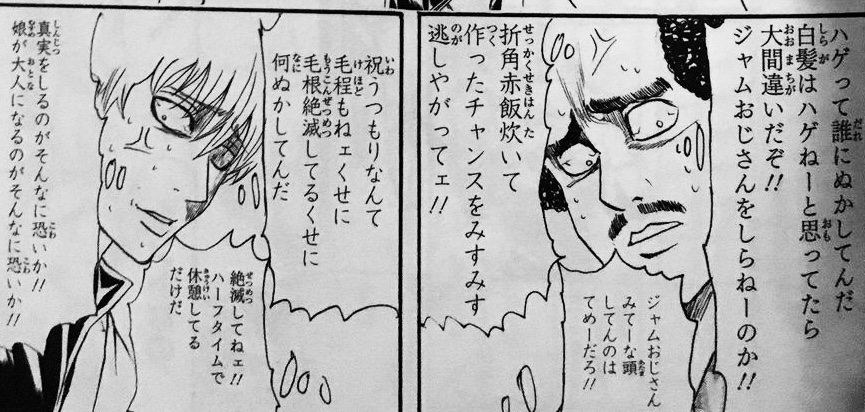 ハゲって誰にぬかしてんだ
白髪はハゲねーと思ってたら
大間違いだぞ!!
ジャムおじさんをしらねーのか!!
ジャムおじさん
みてーな頭
してんのは
てめーだろ!!
折角赤飯炊いて
作ったチャンスをみすみす
逃しやがってェ!!
祝うつもりなんて
毛程もねェくせに
毛根絶滅してるくせに
何ぬかしてんだ
絶滅してねェ!!
ハーフタイムで
休憩してる
だけだ
真実をしるのがそんなに恐いか!!
娘が大人になるのがそんなに恐いか!!